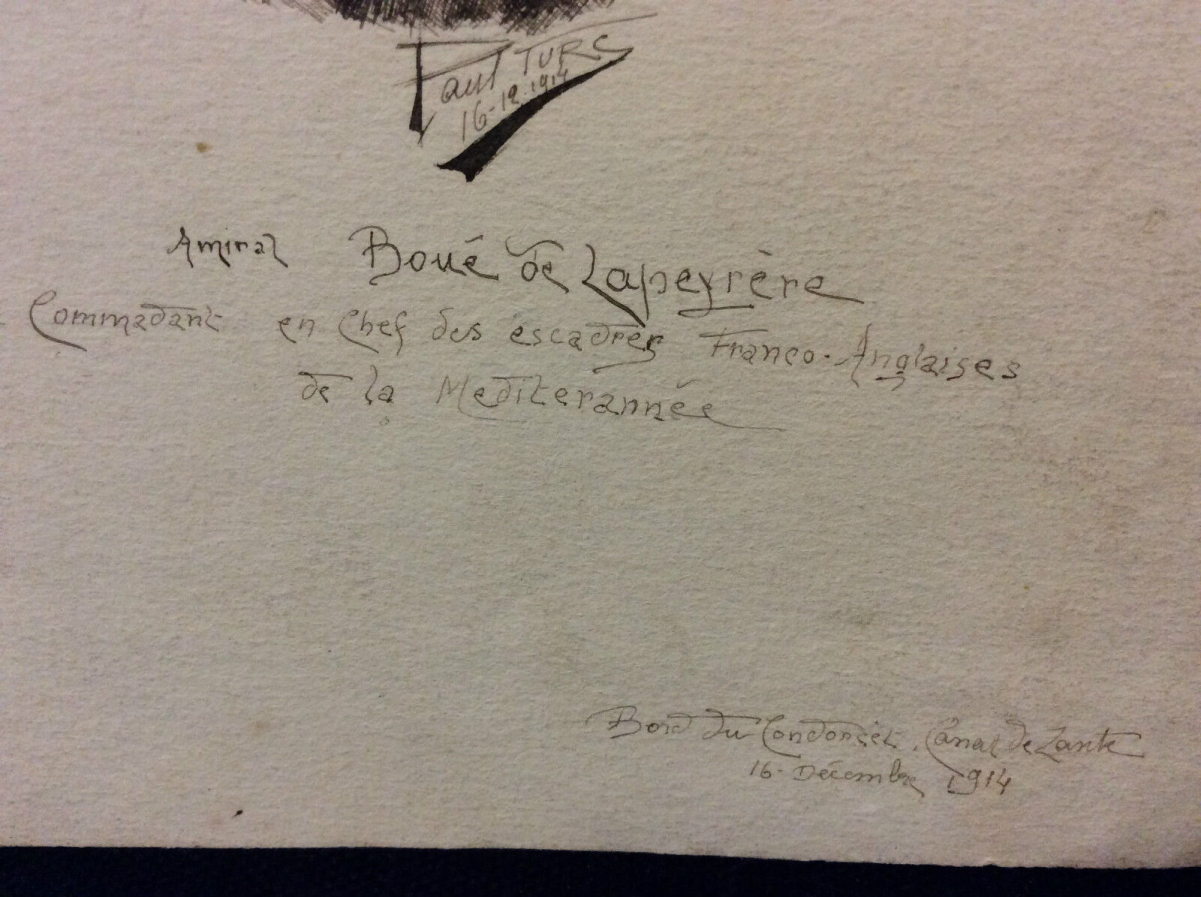 Paul TURC
16-12.1914
Amiral Boué de Lapeyrère
Commadant en Chef des escadres Franco-Anglaises
de la Mediterannée
Bord du Condorcet. Canal de Zante
16. Décembre 1914